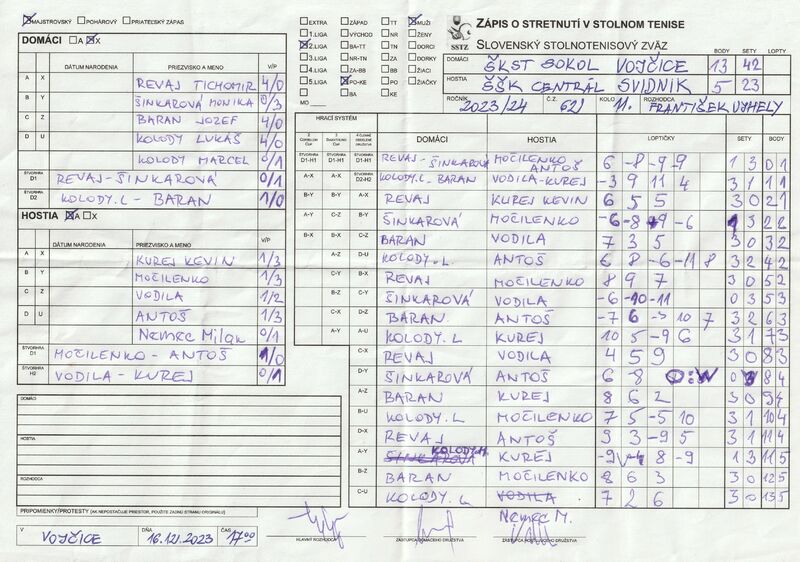 MAJSTROVSKÝ POHÁROVÝ PRIATEĽSKÝ ZÁPAS
EXTRA ZÁPAD TT MUŽI
1.LIGA VÝCHOD NR ŽENY
2.LIGA BA-TT TN DORCI
3.LIGA NR-TN ZA DORKY
4.LIGA ZA-BB BB ŽIACI
5.LIGA PO-KE PO ŽIAČKY
BA KE
MO
SSTZ
ZÁPIS O STRETNUTÍ V STOLNOM TENISE
SLOVENSKÝ STOLNOTENISOVÝ ZVÄZ
BODY SETY LOPTY
DOMÁCI ŠKST SOKOL VOJČICE 13 42
HOSTIA ŠŠK CENTRÁL SVIDNÍK 5 23
ROČNÍK 2023/24 Č.Z. 62) KOLO 11. ROZHODCA FRANTIŠEK UJHELY
DOMÁCI A X
DÁTUM NARODENIA PRIEZVISKO A MENO V/P
A X REVAJ TICHOMIR 4/0
B Y ŠINKAROVÁ MONIKA 0/3
C Z BARAN JOZEF 4/0
D U KOLODY LUKÁŠ 4/0
KOLODY MARCEL 0/1
ŠTVORHRA D1 REVAJ-ŠINKAROVÁ 0/1
ŠTVORHRA D2 KOLODY.L - BARAN 1/0
HOSTIA A X
DÁTUM NARODENIA PRIEZVISKO A MENO V/P
A X KUREJ KEVIN 1/3
B Y MOČILENKO 1/3
C Z VODILA 1/2
D U ANTOŠ 1/3
Nemec Milan 0/1
ŠTVORHRA D1 MOČILENKO - ANTOŠ 1/0
ŠTVORHRA H2 VODILA - KUREJ 0/1
DOMÁCI
HOSTIA
ROZHODCA
PRIPOMIENKY/PROTESTY (AK NEPOSTAČUJE PRIESTOR, POUŽITE ZADNÚ STRANU ORIGINÁLU)
V VOJČICE DŇA 16.12.2023 ČAS 17°°
HRACÍ SYSTÉM
DOMÁCI HOSTIA LOPTIČKY SETY BODY
D1-H1 D1-H1 D1-H1 REVAJ-ŠINKAROVÁ MOČILENKO ANTOŠ 6 -8 -9 -9 1 3 0 1
A-X A-X D2-H2 KOLODY.L - BARAN VODILA-KUREJ -3 9 11 4 3 1 1 1
B-Y B-Y A-X REVAJ KUREJ KEVIN 6 5 5 3 0 2 1
A-Y C-Z B-Y ŠINKAROVÁ MOČILENKO -6 -8 9 -6 1 3 2 2
B-X B-X C-Z BARAN VODILA 7 3 5 3 0 3 2
A-Z D-U KOLODY.L. ANTOŠ 6 8 -6 -11 8 3 2 4 2
C-Y B-X REVAJ MOČILENKO 8 9 7 3 0 5 2
B-Z C-Y ŠINKAROVÁ VODILA -6 -10 -11 0 3 5 3
C-X D-Z BARAN ANTOŠ -7 6 -3 10 7 3 2 6 3
A-Y A-U KOLODY.L KUREJ 10 5 -9 6 3 1 7 3
C-X REVAJ VODILA 4 5 9 3 0 8 3
D-Y ŠINKAROVÁ ANTOŠ 6 8 0 3 8 4
A-Z BARAN KUREJ 8 6 2 3 0 9 4
B-U KOLODY.L MOČILENKO 7 5 -5 10 3 1 10 4
D-X REVAJ ANTOŠ 9 3 -9 5 3 1 11 4
A-Y ŠINKAROVÁ KOLODY.M. KUREJ -9 -4 8 -9 1 3 11 5
B-Z BARAN MOČILENKO 8 6 3 3 0 12 5
C-U KOLODY.L VODILA 7 2 6 3 0 13 5
Nemec M.
HLAVNÝ ROZHODCA ZÁSTUPCA DOMÁCEHO DRUŽSTVA ZÁSTUPCA HOSŤUJÚCEHO DRUŽSTVA